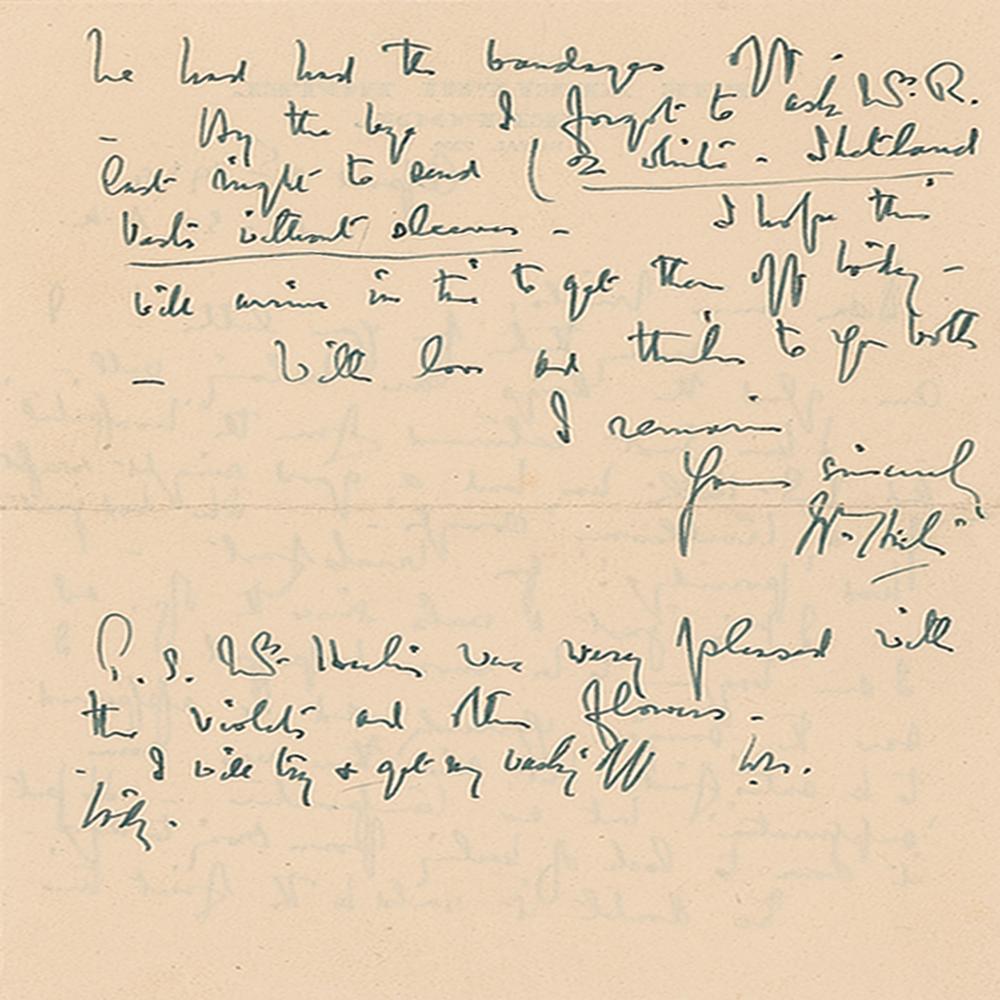 he had had the bandages off.
– By the bye I forgot to ask Mrs. R.
last night to send (2 white - Shetland
vests without sleeves – I hope this
will arrive in time to get them off today –
– With love and thanks to you both
I remain
Yours sincerely
Wm.
P.S. Mrs. was very pleased with
the violets and other flowers.
- I will try & get my washing off Wm.
today.